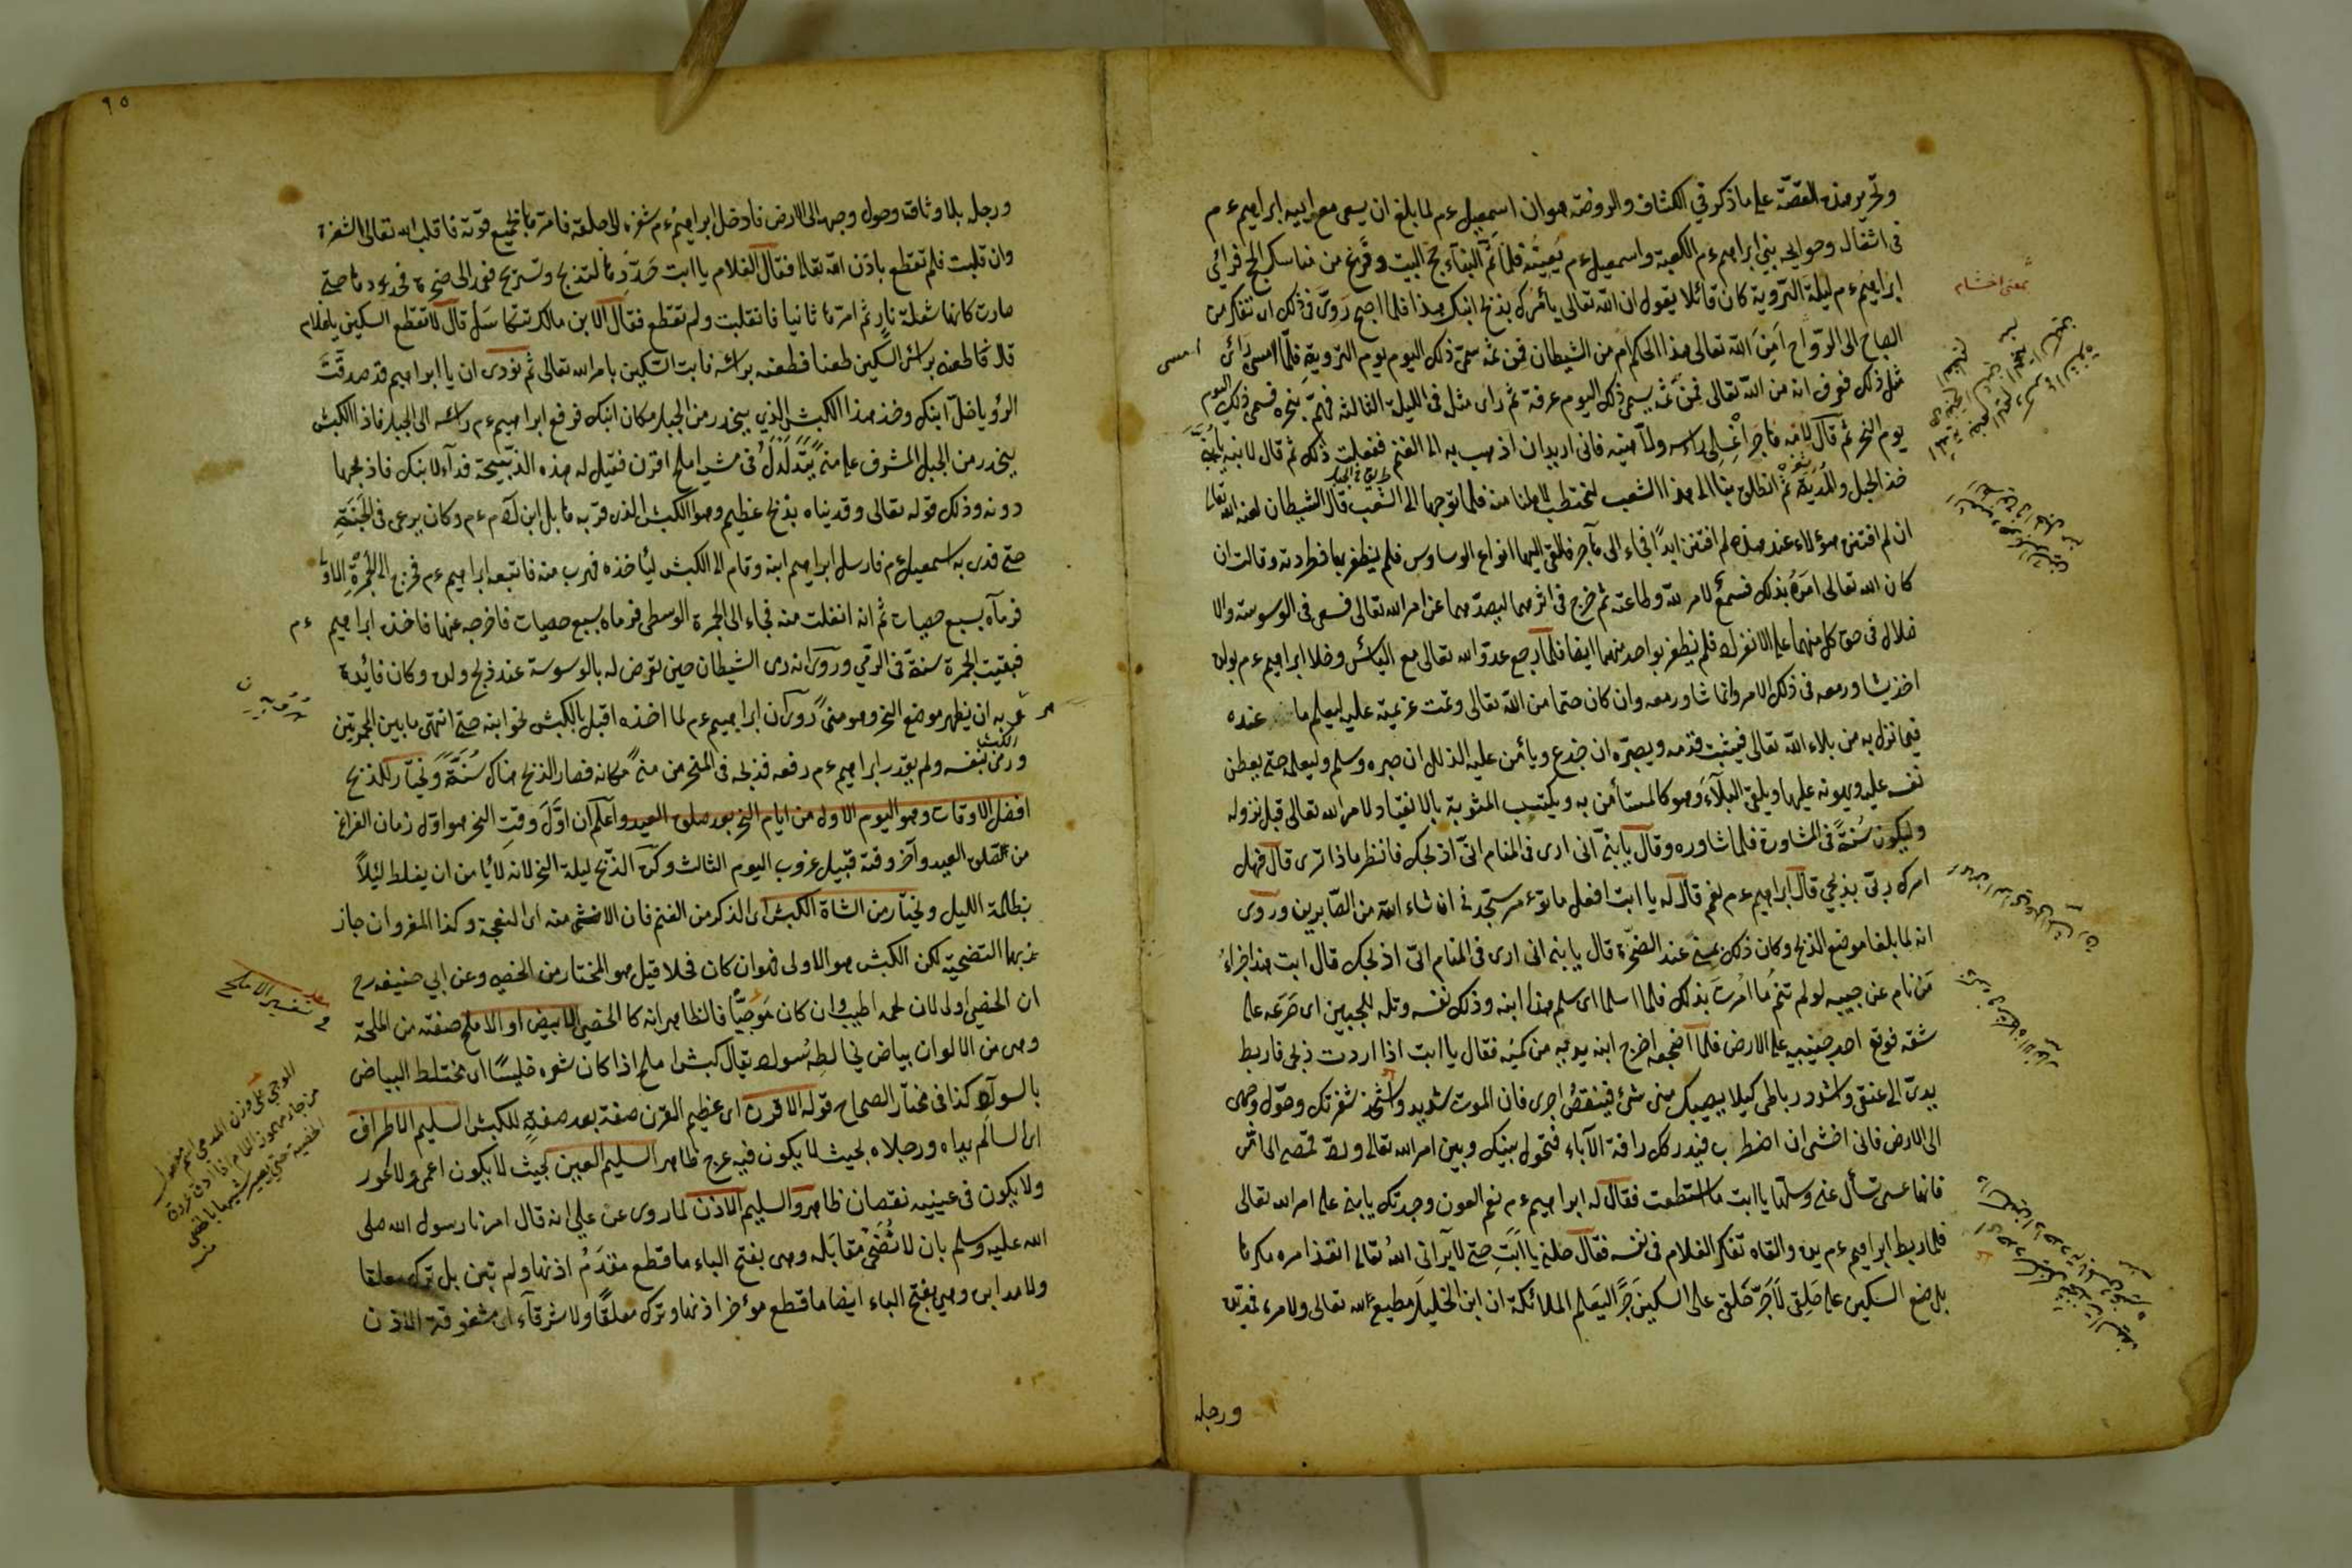 وتحرير هذه القصّة على ما ذكر في الكشاف والروضة هو ان اسمعيل ءم لما بلغ ان يسعى مع ابيه ابراهيم ءم
في اشغاله وحوايجه بنى ابراهيم ءم الكعبة واسمعيل ءم يُعينُه فلما تَمَّ البنآء حج البيت وفَرغ من مناسك الحج فرأى
ابراهيم ءم ليلة التروية كان قائلا يقول ان الله تعالى يأمرك بذبح ابنك هذا فلما اصبح رَوّى في ذلك اى تفكر من
الصباح الى الرّواح أمِنَ الله تعالى هذا الحكم ام من الشيطان فمن ثمّه سمّى ذلك اليوم يوم التروية فلمّا امسى رأى
مثل ذلك فعرف انه من الله تعالى فمن ثمّه يسمى ذلك اليوم عرفة ثم راى مثله في الليلة الثالثة فهمّ بنحره فسمى ذلك اليوم
يوم النحر ثم قال لامّه هاجَر اغسلي راسه ولحيته فانى اريد ان اذهب به الى الغنم ففعلت ذلك ثم قال لابنه يا بُنَىَّ
خذ الحبل والمُديَة ثم انطلق بنا الى هذا الشعب لنحتطب لاهلنا منه فلما توجها الى الشعب قال الشيطان لعنه الله تعالى
ان لم افتتن هؤلاء عند هذه لم افتتن ابدًا فجاء الى هآجر فالقى اليها انواع الوساوس فلم يظفر بها فطردته وقالت ان
كان الله تعالى امَرَهُ بذلك فسمعٌ لامر الله وطاعته ثم خرج في اثرهما ليصدّهما عن امر الله تعالى فسعى في الوسوسة والا
ضلال في حق كل منهما على الانفراد فلم يظفر بواحد منهما ايضا فلما رجع عدوّ الله تعالى مع اليأس وخلا ابراهيم ءم بولده
اخذ يشاورمعه في ذلك الامر وانما شاورمعه وان كان حتما من الله تعالى وتمت عزيمته عليه ليعلم ما عنده
فيما نزل به من بلاء الله تعالى فيثبت قدمه ويصبّره ان جزع ويأمن عليه الزلل ان صبر وسلم وليعلمه حتى يوطن
نفسه عليه ويهونه عليها ويلقى البلآءَ وهو كالمستأنس به ويكتسب المثوبة بالانقياد لامر الله تعالى قبل نزوله
وليكون سُنةً في المشاورة فلما شاوره وقال يا بنىّ انى ارى في المنام انّى اذبحك فانظر ماذا ترى قال فهل
امرك ربّى بذبحي قال ابراهيم ءم نعم قال له يا ابت افعل ما تؤمر ستجدنى ان شاء الله من الصّابرين وروى
انه لما بلغا موضع الذبح وكان ذلك بمنى عند الصّخرة قال يا بنى انى ارى في المنام انّى اذبحك قال ابت هذا جزاءُ
مَنْ نام عن حبيبه لو لم تنم ما أُمِرتَ بذلك فلما اسلما اى سلم هذا ابنه وذلك نفسه وتله للجبين اى صَرَعَه على
شقه فوقع احد جنبيه على الارض فلما اضجعه اخرج ابنه يديه من كميه فقال يا ابت اذا اردت ذبحى فاربط
يدىّ الى عنقى واشدد رباطى كيلا يصيبك منى شئ فينقص اجرى فان الموت شديد واشحذ شفرتك وحوّل وجهى
الى الارض فانى اخشى ان اضطرب فيدركك رافة الآباء فتحول بينك وبين امر الله تعالى
فانها عسى تسأل عنى وسلّها يا ابت ما استطعت فقال له ابراهيم ءم نعم العون وجدتك يا بنى على امر الله تعالى
فلما ربط ابراهيم ءم يديه والقاه تفكر الغلام في نفسه فقال حلنى يا ابَتِ حتى لا يرانى اللهُ تعالى انفذ امره مكرها
بل ضع السكين على حَلقى لأجرّ حَلقى على السكين جَرًّا ليَعلم الملائكة ان ابن الخليل مطيع لله تعالى ولامره فمدّ يديه
ورجله
بمعنى احتشام
امسى
٩٥
ورجله بلا وثاقة وحول وجهه الى الارض فادخل ابراهيم ءم شفرة الى حلقه فامرّها بجميع قوّته فاقلب الله تعالى الشفرة
وانقلبت فلم تقطع باذن الله تعالى فقال الغلام يا ابت حَدِّدها لتذبح وتستريح فعد الى صخرة فحددها حتى
صارت كانها شعلة نار ثم امرّها ثانيا فانقلبت ولم تقطع فقال الابن مالك تتكاسل قال لا تقطع السكين يا غلام
قال فاطعنه براس السكين طعنا فطعنه براسه فابت السّكين بامر الله تعالى ثم نودى ان يا ابراهيم قد صدقتَ
الرؤيا خلّ ابنك وخذ هذا الكبش الذى ينحدر من الجبل مكان ابنك فرفع ابراهيم ءم راسه الى الجبل فاذا الكبش
ينحدر من الجبل المشرف على منى يَتَدَلدَلُ فى مشيه املح اقرن فقيل له هذه الذبيحة فدآء لابنك فاذبحها
دونه وذلك قوله تعالى وفديناه بذبح عظيم وهو الكبش الذى قربه هابل ابن آدم ءم وكان يرعى في الجَنّةِ
حتى فدى به اسمعيل ءم فارسل ابراهيم ابنه وقام الى الكبش ليأخذه فهرب منه فاتبعه ابراهيم ءم فخرج الى الجمرة الاولى
فرمآه بسبع حصيات ثم انه انفلت منه فجاء الى الجمرة الوسطى فرماه بسبع حصيات فاخرجه عنها فاخذه ابراهيم ءم
فبقيت الجمرة سنة في الرمي وروى انه رمى الشيطان حين تعرض له بالوسوسة عند ذبح ولده وكان فائدة
هربه ان يظهر موضع النحر وهو منىً روى ان ابراهيم ءم لما اخذه اقبل بالكبش نحو ابنه حتى انتهى ما بين الجمرتين
الكبش
ورمى بنفسه ولم يقدر ابراهيم ءم رفعه فذبحه في المنحر من منىً مكانه فصار الذبح هناك سُنّةً ويختار للذبح
افضل الاوقات وهو اليوم الاول من ايام النحر بعد صلوة العيد واعلم ان اوّلَ وقت النحر هو اوّل زمان الفراغ
من صلوة العيد وآخر وقته قبيل غروب اليوم الثالث وكره الذبح ليلة النحر لانه لا يأمن ان يغلط ليلاً
بظلمة الليل ويختار من الشاة الكبش اى الذكر من الغنم فان الانثى منه اى النعجة وكذا المعز وان جاز
بهما التضحية لكن الكبش هو الاولى فهو ان كان فحلا قيل هو المختار من الخصى وعن ابي حنيفه رح
ان الخصي اولى لان لحمه اطيب وان كان مَوجيًّا فالظاهر انه كالخصي الابيض او الاملح صفته من الملحة
وهى من الالوان بياض يخالطه سواد يقال كبش املح اذا كان شعره خليسًا اى مختلط البياض
بالسواد كذا فى مختار الصحاح قوله الاقرن اى عظيم القرن صفة بعد صفة للكبش السليم الاطراف
اى السالم يداه ورجلاه بحيث لا يكون فيه عرج ظاهر السليم العين بحيث لا يكون اعمى ولا اعور
ولا يكون فى عينيه نقصان ظاهر والسليم الاذن لما روى عن على انه قال امرنا رسول الله صلى
الله عليه وسلم بان لا نُضَحّى مقابَلة وهى بفتح الباء ما قطع مقدَمُ اذنها ولم يَبِن بل ترك معلقا
ولا مدابرة وهي بفتح الباء ايضا ما قطع مؤخر اذنها وترك معلقًا ولا شرقآء اى مشقوقة الاذن
تفسير الاملح